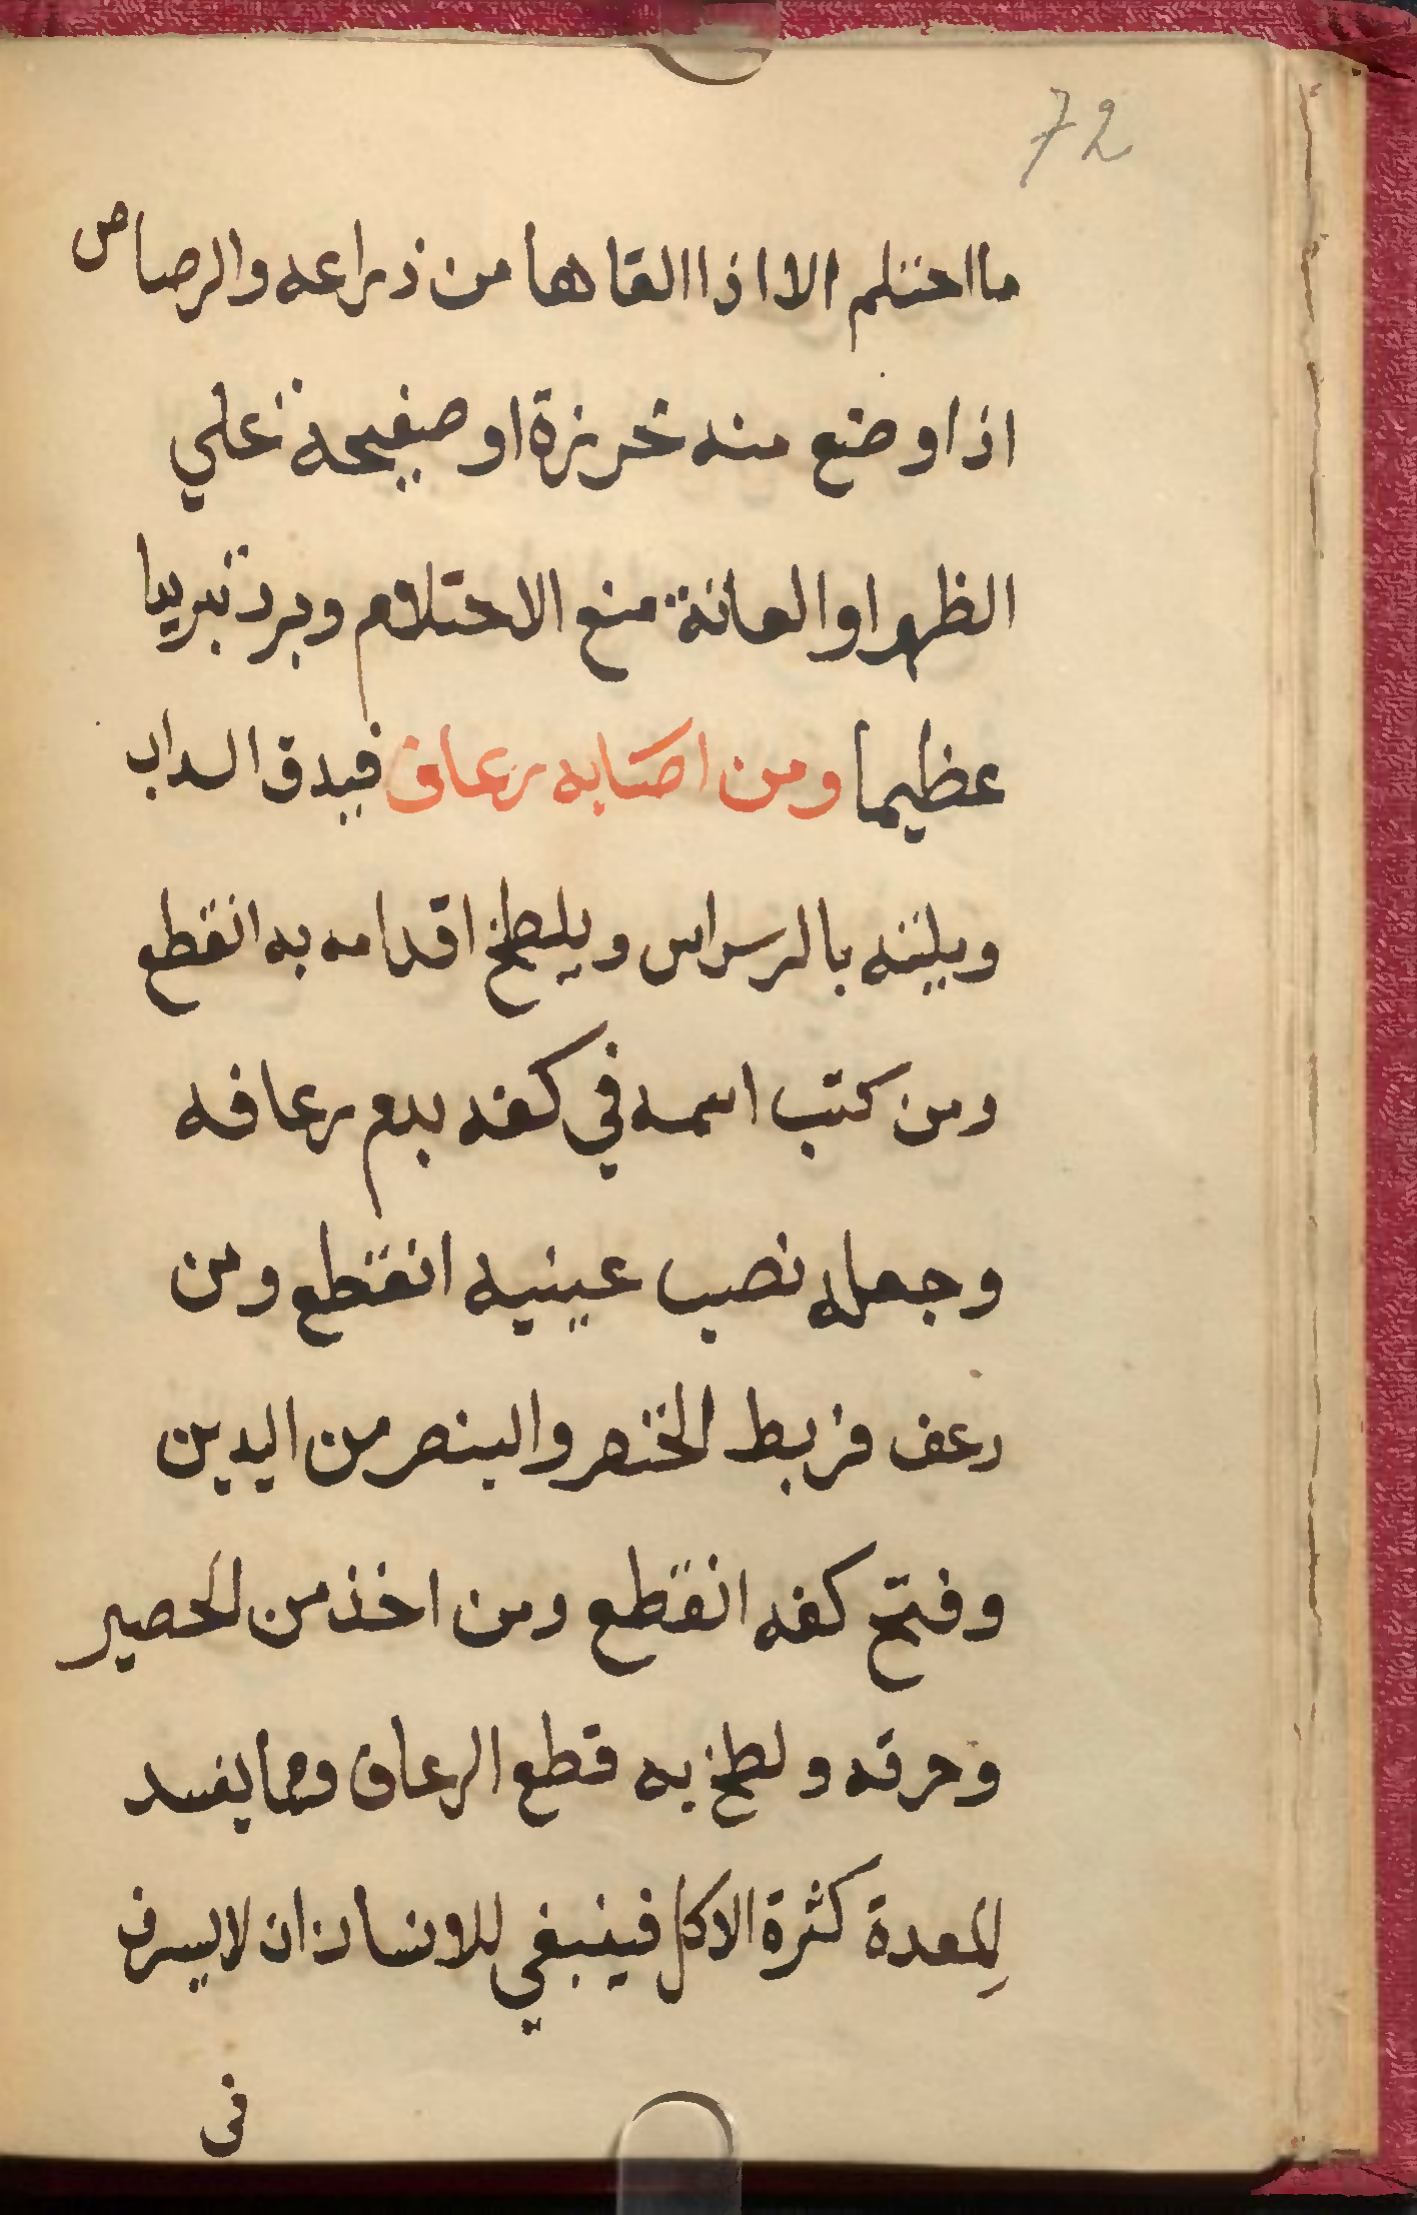 72
ما احتلم الا اذا القاها من ذراعه والرصاص
اذا وضع منه خريزة او صفيحة علي
الظهر او العانة منع الاحتلام وبرد تبريا
عظيما ومن اصابه رعاف فيدق السداب
ويلته بالرسراس ويلطخ اقدامه به انقطع
ومن كتب اسمه في كفه بدم رعافه
وجعله نصب عينيه انقطع ومن
رعف فربط الخنصر والبنصر من اليدين
وفتح كفه انقطع ومن اخذ من الحصير
وحرقه ولطخ به قطع الرعاف ومما يفسد
للمعدة كثرة الاكل فينبغي للانسان ان لا يسرف
في